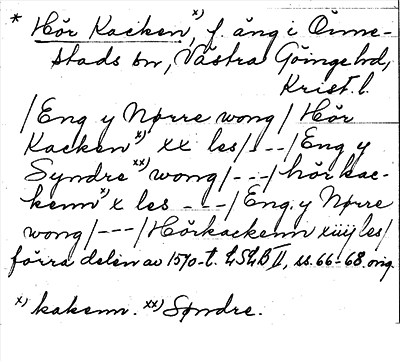 * Hör Kacken,x) f. äng i Önne-
stads sn, Västra Göinge hd,
Krist. l.
/Eng y Nørre wong/ Hör
Kackenx) xx les/---/Eng y
Syndrexx) wong/---/hör kac-
kennx) x les ---/Eng y Nørre
wong/---/Hörkackenn xiiij les/
förra delen av 1570-t. LSLB II, ss. 66-68. orig.
x) kakenn. xx) Søndre.